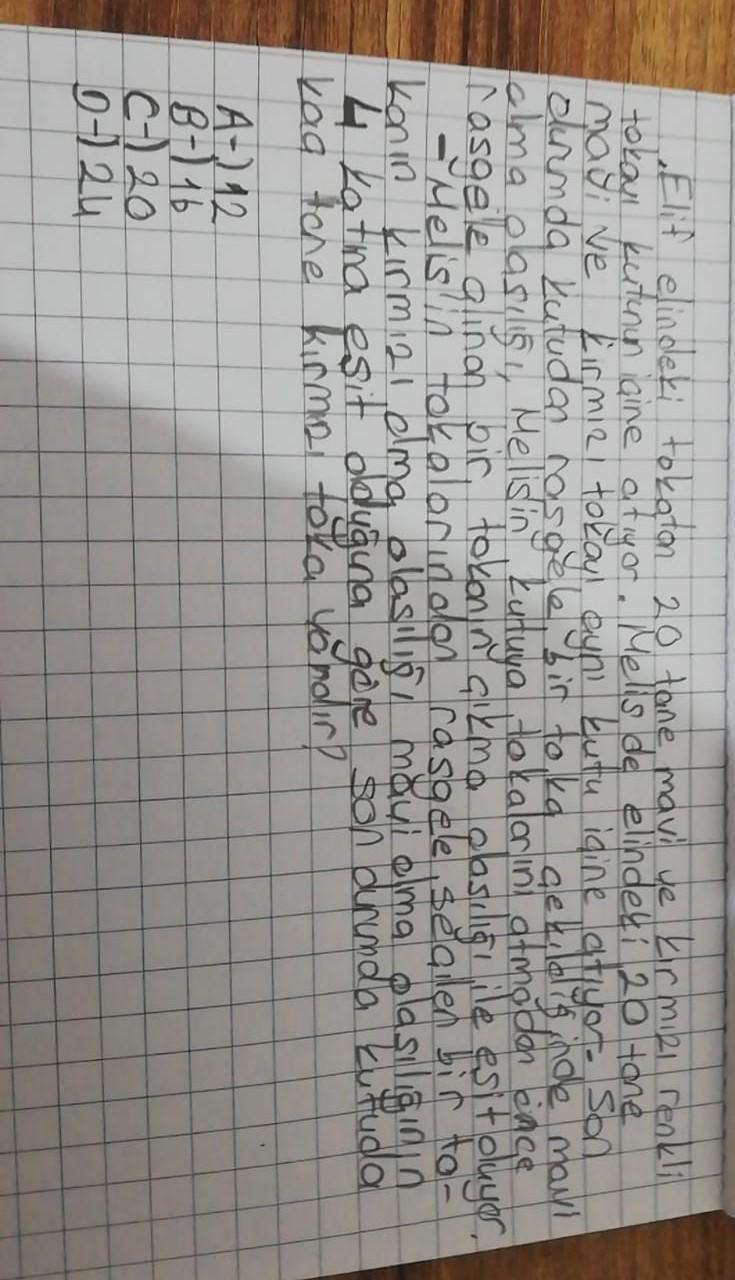 .Elif elindeki tokaton 20 tane mavi ve kırmızı renkli
tokayı kutunun içine atıyor. Melis de elindeki 20 tane
mavi ve kırmızı tokayı aynı kutu içine atıyor. Son
durumda kutudan rasgele bir toka çekildiğinde mavi
olma olasılığı, Melisin kutuya tokalarını atmadan önce
rasgele alınan bir tokanın çıkma olasılığı ile eşit oluyor.
- Melis'in tokalarından rasgele seçilen bir to-
kanın kırmızı olma olasılığı mavi olma olasılığının
4 katına eşit olduğuna göre son durumda kutuda
kaç tane kırmızı toka vardır?
A-) 12
B-) 16
C-) 20
D-) 24